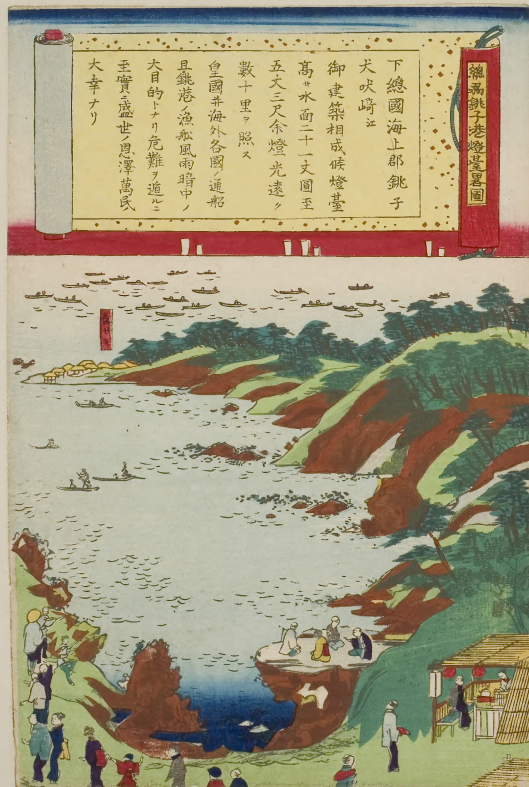 總州銚子港燈臺畧圖
下總國海上郡銚子
犬吠﨑江
御建築相成候燈臺
髙サ水面二十一丈圓至
五丈三尺余燈光遠ク
數十里ヲ照ス
皇國并海外各國ノ通船
且銚港ノ漁舩風雨暗中ノ
大目的トナリ危難ヲ遁ルニ
至實ニ盛世ノ恩澤萬民
大幸ナリ